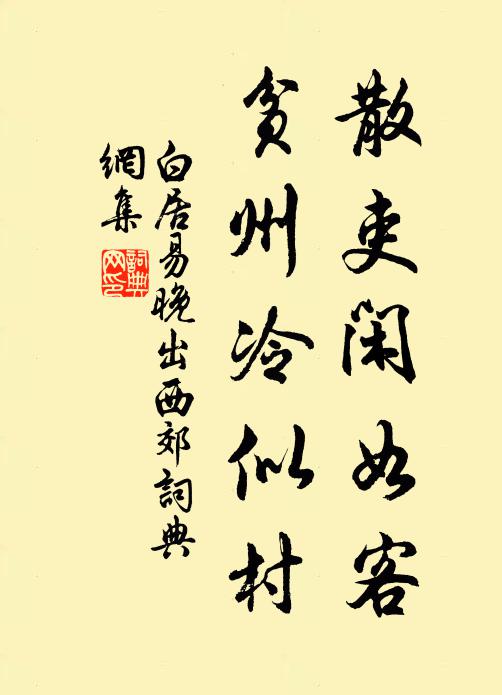 散吏閑如客
貧州冷似村
白居易晚出西郊詞典
網集
詞典
网印